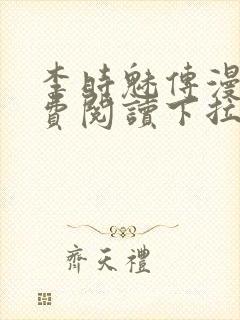 李時魅傳漫
費閱讀下拉
齊天禮